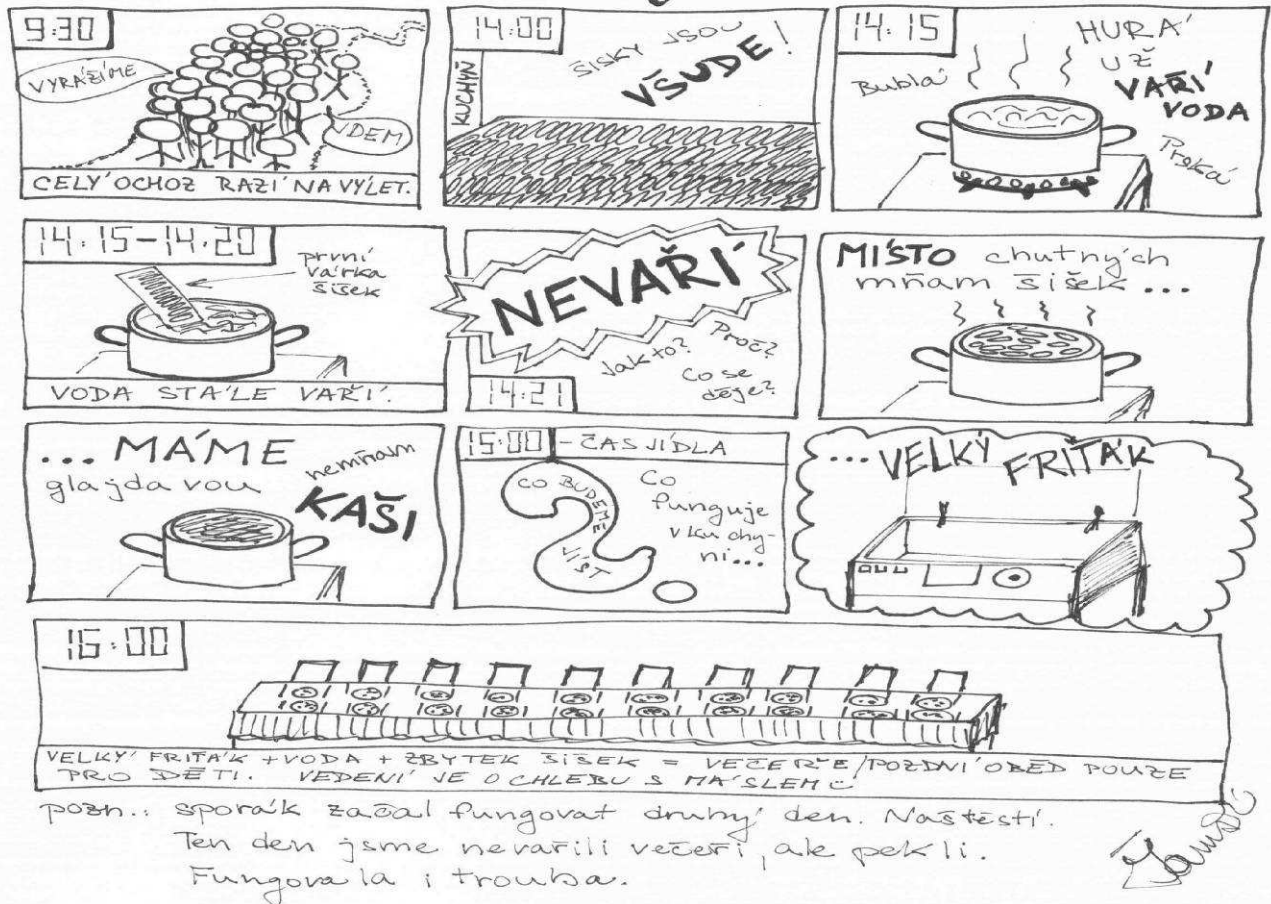 9:30
VYRÁŽÍME
JDEM
CELÝ OCHOZ RAZÍ NA VÝLET.
14:00
KUCHYŇ
ŠIŠKY JSOU
VŠUDE!
14:15
HURÁ
UŽ
VAŘÍ
VODA
Bublá
14:15-14:20
první
várka
šišek
VODA STÁLE VAŘÍ.
NEVAŘÍ
Jak to?
Proč?
Co se
děje?
14:21
MÍSTO chutných
mňam šišek ...
... MÁME
glajdavou
nemňam
KAŠI
15:00 - ČAS JÍDLA
CO BUDEME
JÍST
Co
funguje
v kuchy-
ni...
... VELKÝ FRIŤÁK
16:00
VELKÝ FRIŤÁK + VODA + ZBYTEK ŠIŠEK = VEČEŘE/POZDNÍ OBĚD POUZE
PRO DĚTI. VEDENÍ JE O CHLEBU S MÁSLEM
pozn.: sporák začal fungovat druhý den. Naštěstí.
Ten den jsme nevařili večeři, ale pekli.
Fungovala i trouba.